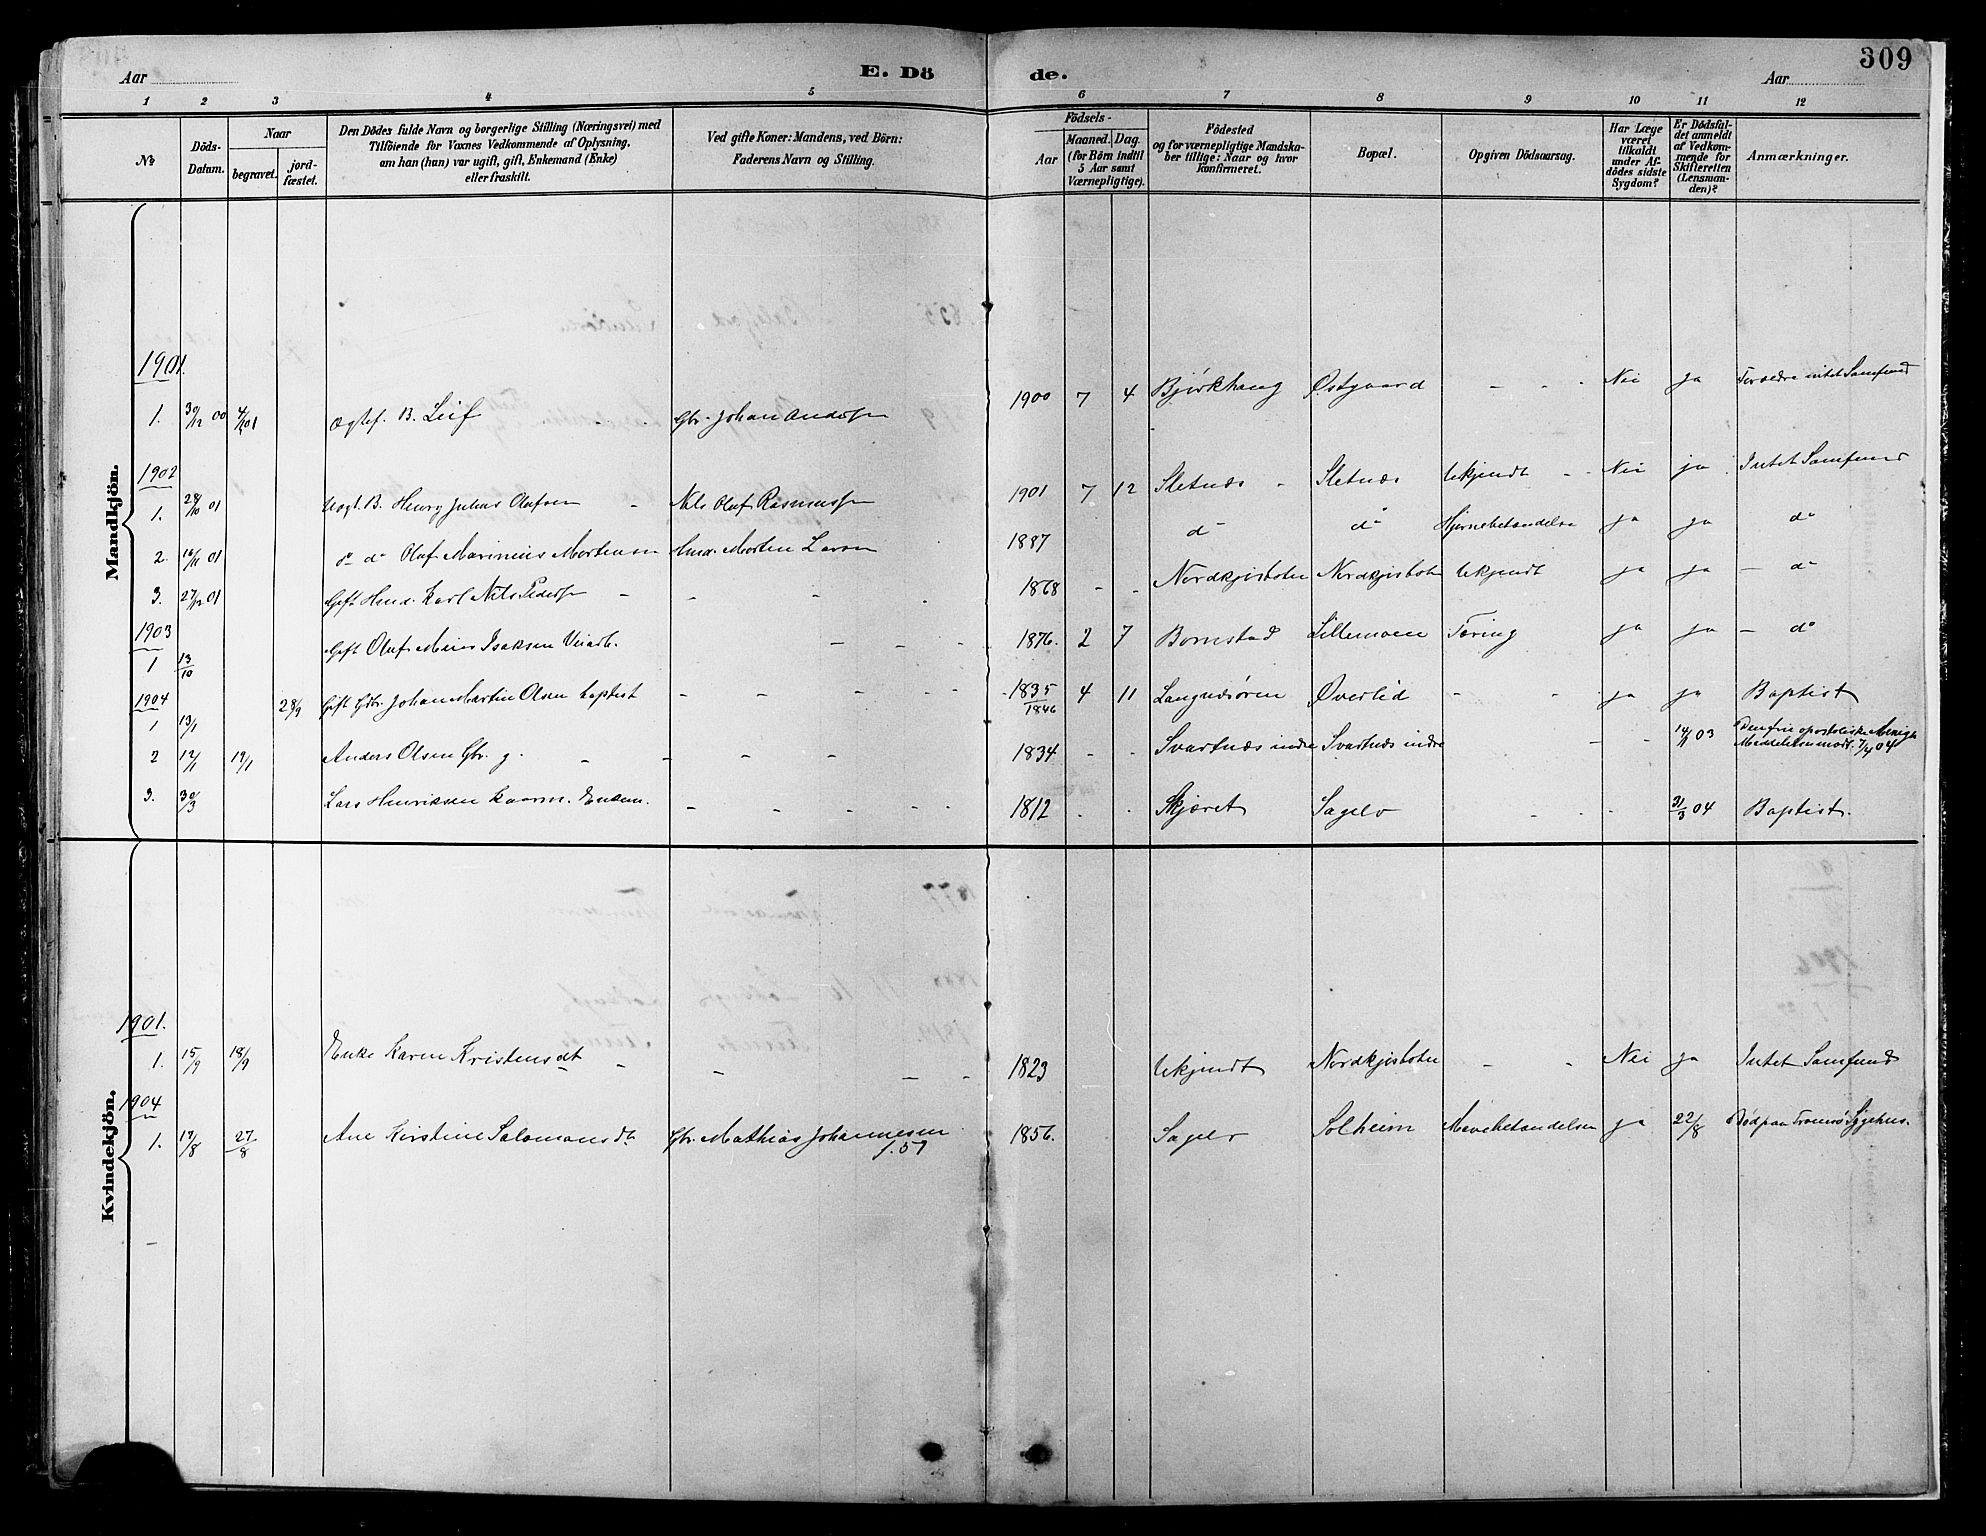 309
Aar
E. Dö
de.
Aar
1 2 3 4 5 6 7 8 9 10 11 12
№
Döds-
Datum.
Naar
begravet.
jord-
fæstet.
Den Dödes fulde Navn og borgerlige Stilling (Næringsvei) med
Tilföiende för Voxnes Vedkommende af Oplysning,
om han (hun) var ugift, gift, Enkemand (Enke)
eller fraskilt.
Ved gifte Koner: Mandens, ved Börn:
Faderens Navn og Stilling.
Födsels-
Aar
Maaned.
Dag.
(for Börn indtil
5 Aar samt
Værnepligtige).
Födested
og for værnepligtige Mandska-
ber tillige: Naar og hvor
konfirmeret.
Bopæl.
Opgiven Dödsaarsag.
Har Læge
været
tilkaldt
under Af-
dödes sidste
Sygdom?
Er Dödsfal-
det anmeldt
af Vedkom-
mende for
Skifteretten
(Lensman-
den)?
Anmærkninger.
Mandkjön.
1901.
1. 30/12 00 4/1 01 Ægtef. B. Leif Gbr. Johan Anderssen 1900 7 4 Bjørkhaug Østgaard - - - Nei ja Forældre intet Samfund
1902
1. 28/10 01 Uægt. B. Henry Julius Olufsen - Nils Oluf Rasmussen 1901 7 12 Sletnæs - Sletnæs Ukjendt - Nei ja Intet Samfund
2. 16/11 01 do do Oluf Marinius Mortensen Inds. Morten Larsen 1887 do do Hjernebetændelse ja ja do
3. 27/12 01 Gift Inds. Karl Nils Pedersen - - - 1868 - - Nordkjosbotn Nordkjosbotn Ukjendt ja ja - do
1903
1 13/10 Gift Oluf Meier Isaksen Veiarb. - - - 1876. 2 7 Bomstad Lillemoen Tæring ja ja - do
1904
1 13/1 28/9 Gift Gbr. Johan Martin Olsen baptist - - - - 1835/1846 4 11 Langnæsøren Øverlid - - ja ja Baptist
2 12/1 19/1 Anders Olsen Gbr. g. - - - - 1834 - - Svartnæs indre Svartnæs indre - - 14/1 03 Den frie apostoliske Menigh.
Meddelelsen modt. 7/4 04
3. 30/3 Lars Henriksen kaarm. Enkem. - - - - - 1812 - - Skjæret Sagelv - - - 31/3 04 Baptist.
Kvindekjön.
1901.
1. 15/9 18/9 Enke Karen Kristensdt - - - - 1823 Ukjendt Nordkjosbotn - - Nei ja Intet Samfund
1904
1. 19/8 27/8 Ane Kirstine Salomonsdt. Gbr. Mathias Johannesen
f. 57
1856. Sagelv Solheim Mavebetændelsen ja 22/8 Död paa Tromsö Sygehus.